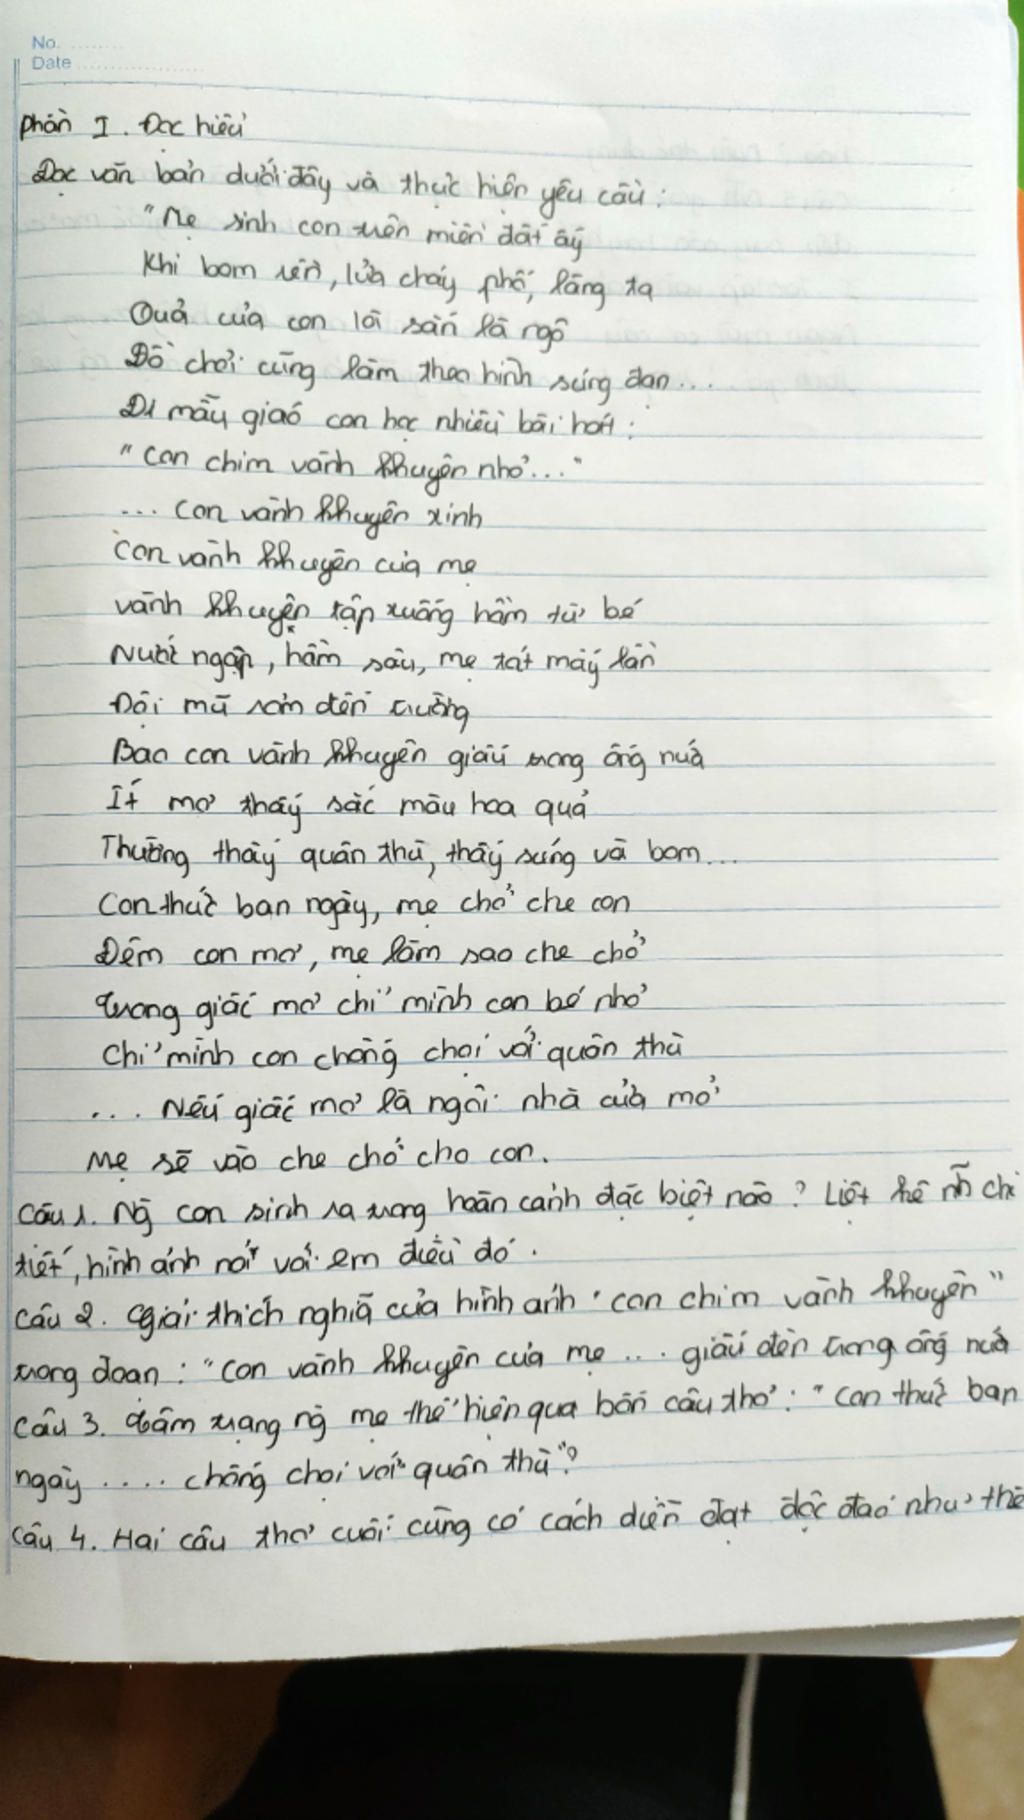 No. ........
Date ...................
Phần I. Đọc hiểu
Đọc văn bản dưới đây và thực hiện yêu cầu:
"Mẹ sinh con trên miền đất ấy
Khi bom rền, lửa cháy phố, làng ta
Quả của con lời sắn là ngô
Đồ chơi cũng làm theo hình súng đạn...
Đi mẫu giáo con học nhiều bài hát:
"Con chim vành khuyên nhỏ..."
... Con vành khuyên xinh
Con vành khuyên của mẹ
Vành khuyên tập xuống hầm từ bé
Nước ngập, hầm sâu, mẹ tát mấy lần
Đội mũ rơm đến trường
Bao con vành khuyên giấu trong ống nứa
Ít mơ thấy sắc màu hoa quả
Thường thấy quân thù, thấy súng và bom...
Con thức ban ngày, mẹ chở che con
Đêm con mơ, mẹ làm sao che chở
Trong giấc mơ chỉ mình con bé nhỏ
Chỉ mình con chống chọi với quân thù
... Nếu giấc mơ là ngôi nhà cửa mở
Mẹ sẽ vào che chở cho con.
Câu 1. Ng con sinh ra trong hoàn cảnh đặc biệt nào? Liệt kê nh chi
tiết, hình ảnh nói với em điều đó.
Câu 2. Giải thích nghĩa của hình ảnh "con chim vành khuyên"
trong đoạn: "Con vành khuyên của mẹ ... giấu đèn trong ống nứa
Câu 3. Tâm trạng ng mẹ thể hiện qua bốn câu thơ: "Con thức ban
ngày .... chống chọi với quân thù"?
Câu 4. Hai câu thơ cuối cùng có cách diễn đạt độc đáo như thế